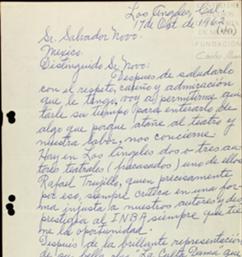 Los Angeles, Cal;
17 de Oct. de 1962
Sr. Salvador Novo.
México
FUNDACIÓN
Distinguido Sr. Novo:
Despues de saludarlo
con el respeto, cariño y admiración
que le tengo, voy a permitirme qui-
tarle su tiempo para enterarlo de
algo que porque atañe al teatro y
nuestra labor, nos concierne.
Hay en Los Angeles dos o tres au-
tores teatrales (fracasados) uno de ellos
Rafael Trujillo, quien precisamente
por eso, siempre critica en una for-
ma injusta a nuestros autores y des-
prestigia al INBA, siempre que tie-
ne la oportunidad.
Después de la brillante representación
de su bella obra La Culta Dama que